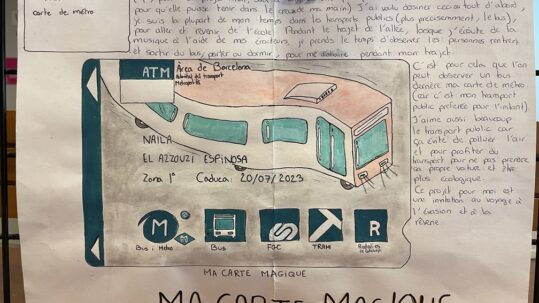 pour qu'elle puisse tenir dans la main) J'ai voulu dessiner ceci car tout d'abord,
je suis la plupart de mon temps dans les transports publics (plus precisemment, le bus),
pour aller et revenir de l'école. Pendant le trajet de l'allée, lorsque j'écoute de la
musique à l'aide de mes écouteurs, je prends le temps d'observer les personnes rentrer
et sortir du bus, parler ou dormir, pour me distraire pendant mon trajet.
carte de métro
C'est pour cela que l'on
peut observer un bus
derrière ma carte de métro
(car c'est mon transport
public préférée pour l'instant).
J'aime aussi beaucoup
le transport public car
ça évite de polluer l'air
et pour profiter du
transport pour ne pas prendre
sa propre voiture et être
plus écologique.
Ce projet pour moi est
une invitation au voyage à
l'évasion et à la
rêverie.
ATM
Àrea de Barcelona
Autoritat del transport
Metropolità
NAILA
EL AZZOUZI ESPINOSA
Zona 1ª Caduca: 20/07/2023
M
R
Bus i Metro
Bus
FGC
TRAM
Rodalies
de Catalunya
MA CARTE MAGIQUE
MA CARTE MAGIQUE